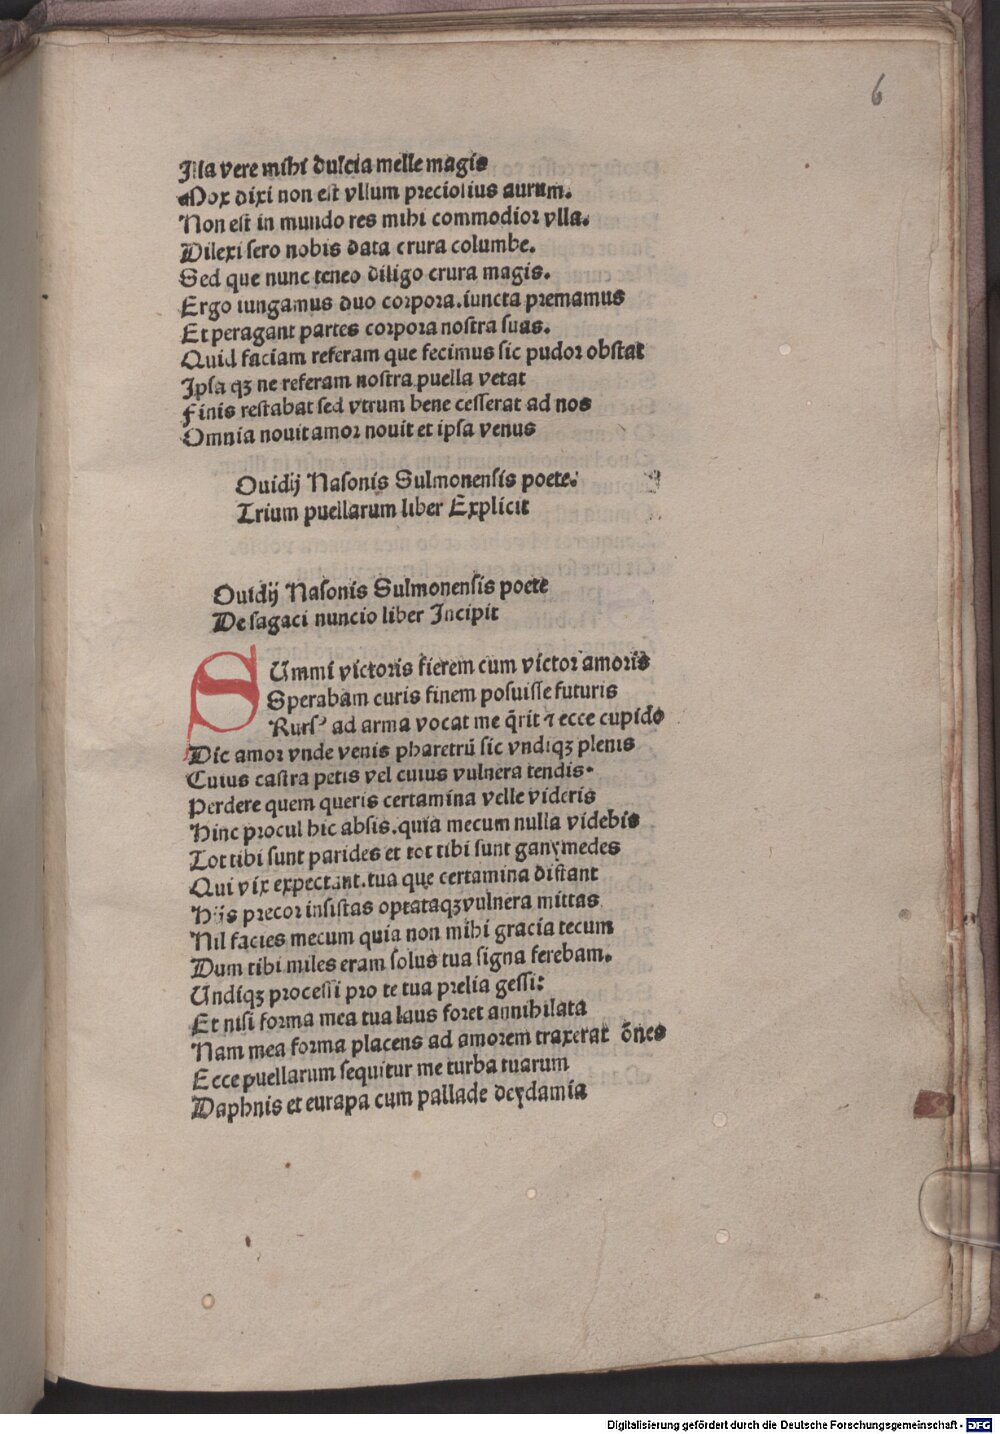 6
Illa vere mihi dulcia melle magis
Mox dixi non est vllum preciosius aurum.
Non est in mundo res mihi commodior vlla.
Dilexi sero nobis data crura columbe.
Sed que nunc teneo diligo crura magis.
Ergo iungamus duo corpora.iuncta premamus
Et peragant partes corpora nostra suas.
Quid faciam referam que fecimus sic pudor obstat
Ipsa qꝫ ne referam nostra puella vetat
Finis restabat sed vtrum bene cesserat ad nos
Omnia nouit amor nouit et ipsa venus
Ouidij Nasonis Sulmonensis poete.
Trium puellarum liber Explicit
Ouidij Nasonis Sulmonensis poete
De sagaci nuncio liber Incipit
SUmmi victoris fierem cum victor amoris
Sperabam curis finem posuisse futuris
Rursꝰ ad arma vocat me q̄rit ⁊ ecce cupido
Dic amor vnde venis pharetrū sic vndiqꝫ plenis
Cuius castra petis vel cuius vulnera tendis.
Perdere quem queris certamina velle videris
Hinc procul hic absis.quia mecum nulla videbis
Tot tibi sunt parides et tot tibi sunt ganymedes
Qui vix expectant.tua que certamina distant
Hijs precor insistas optataqꝫ vulnera mittas
Nil facies mecum quia non mihi gracia tecum
Dum tibi miles eram solus tua signa ferebam.
Undiqꝫ processi pro te tua prelia gessi:
Et nisi forma mea tua laus foret annihilata
Nam mea forma placens ad amorem traxerat ōnes
Ecce puellarum sequitur me turba tuarum
Daphnis et eurapa cum pallade deydamia
Digitalisierung gefördert durch die Deutsche Forschungsgemeinschaft - DFG